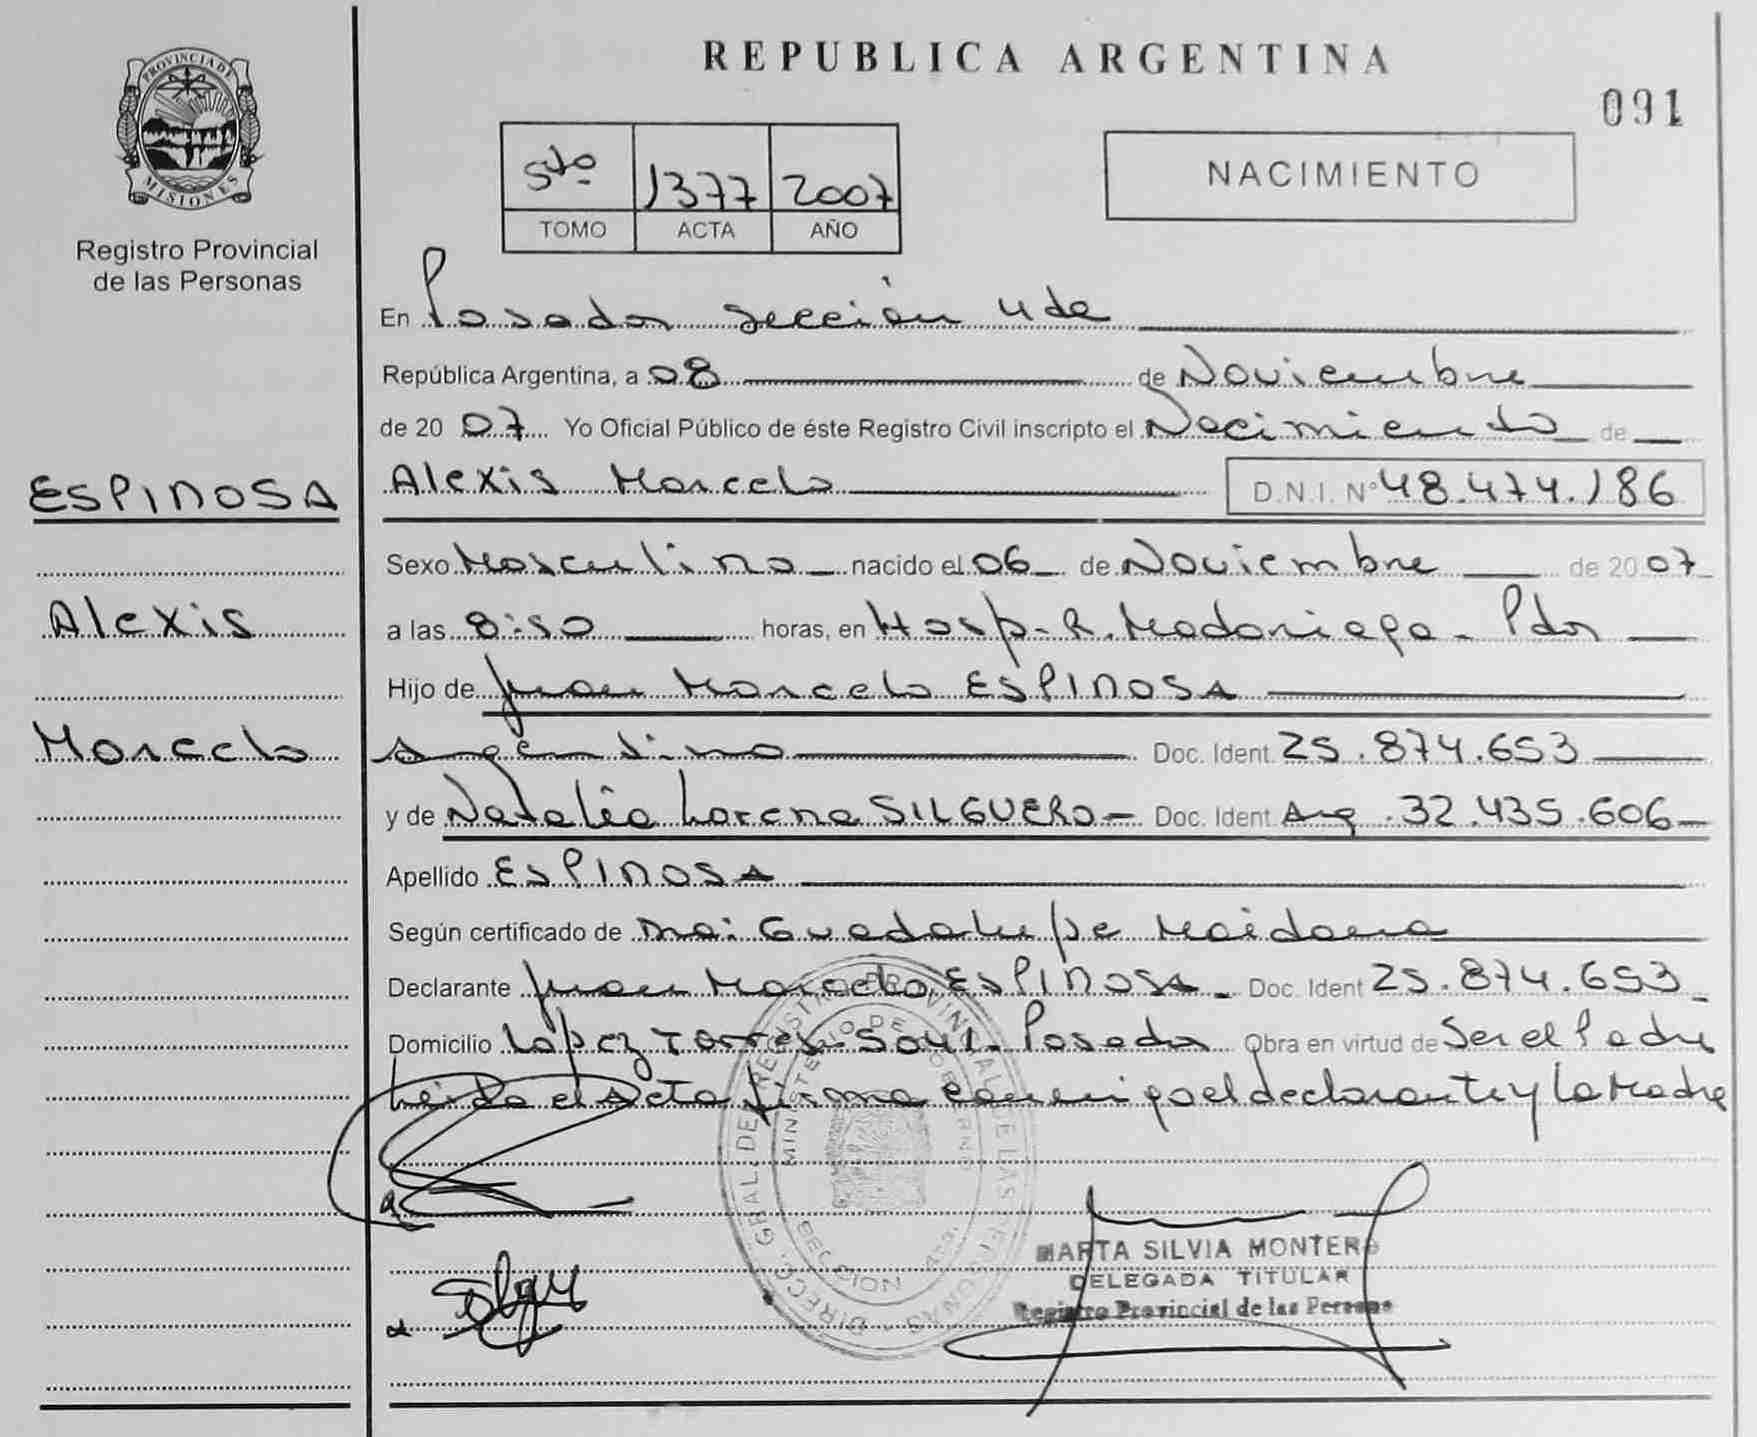 REPUBLICA ARGENTINA
091
PROVINCIA DE
MISIONES
Registro Provincial
de las Personas
5to 1377 2007
TOMO ACTA AÑO
NACIMIENTO
En Posadas sección 4ta
República Argentina, a 08 de Noviembre
de 20 07 Yo Oficial Público de éste Registro Civil inscripto el Nacimiento de
ESPINOSA
Alexis Marcelo D.N.I. Nº 48.474.186
Sexo Masculino nacido el 06 de Noviembre de 20 07
Alexis
a las 8:50 horas, en Hosp. R. Madariaga - Pdas
Hijo de Juan Marcelo ESPINOSA
Marcelo
Argentino Doc. Ident. 25.874.653
y de Natalia Lorena SILGUERO - Doc. Ident Arg. 32.435.606
Apellido ESPINOSA
Según certificado de Guadalupe Maidana
Declarante Juan Marcelo ESPINOSA - Doc. Ident 25.874.653
Domicilio López Torres Posadas Obra en virtud de Ser el Padre
Leída el Acta firma conmigo el declarante y la Madre
DIRECC. GRAL. DE REGISTRO PROVINCIAL DE LAS PERSONAS
MINISTERIO DE GOBIERNO
SECCION
MARTA SILVIA MONTERO
DELEGADA TITULAR
Registro Provincial de las Personas